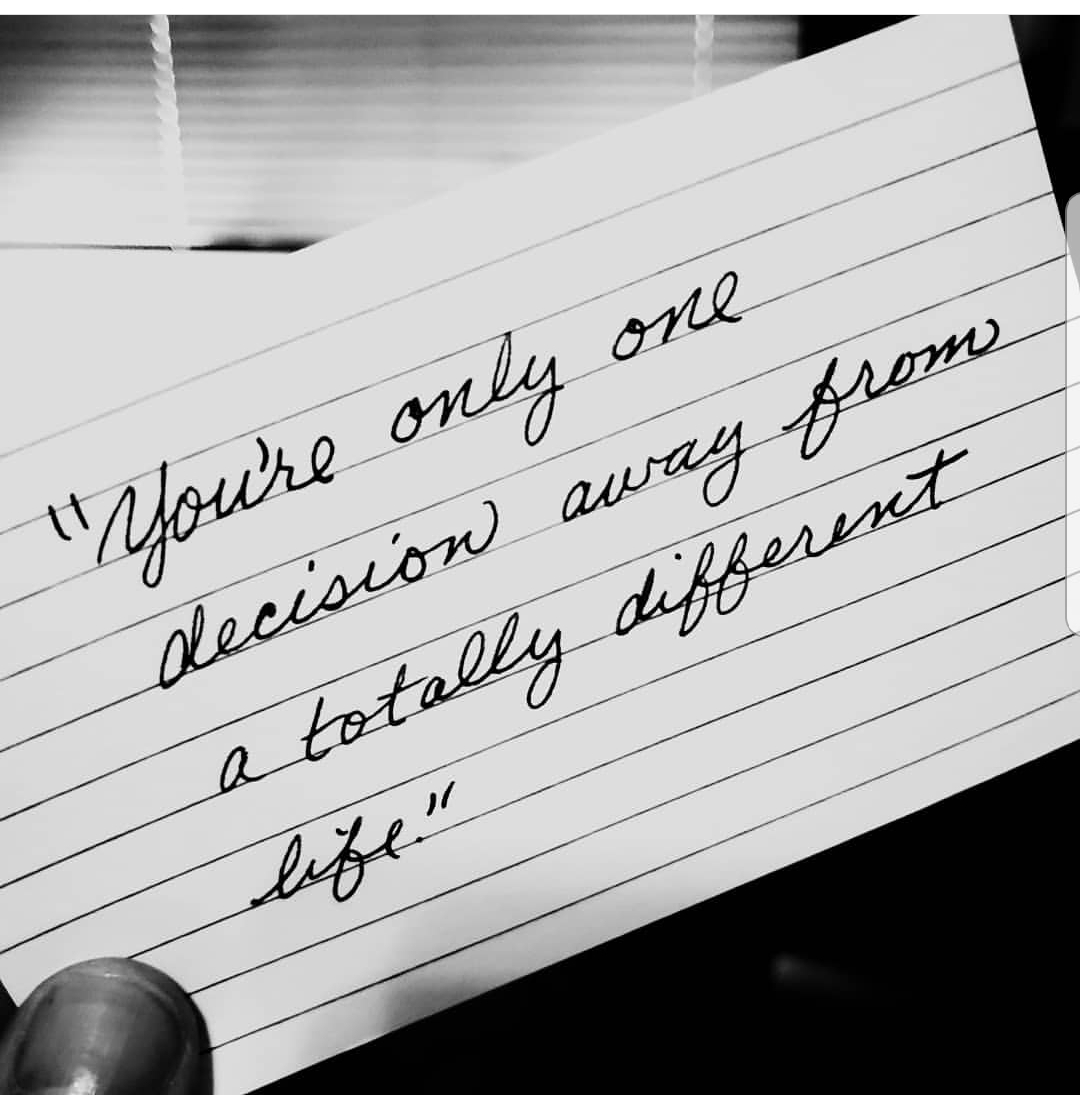 "You're only one
decision away from
a totally different
life."